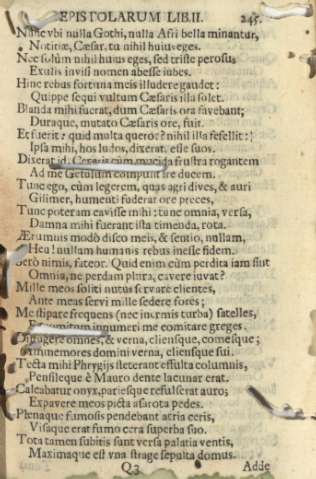 EPISTOLARUM LIB. II. 245.
Nunc ubi nulla Gothi, nulla Afri bella minantur,
Notitiæ, Cæsar, tu nihil huius eges.
Nec solùm nihil huius eges, sed triste perosus
Exulis invisi nomen abesse iubes.
Hinc rebus fortuna meis illudere gaudet:
Quippe sequi vultum Cæsaris illa solet.
Blanda mihi fuerat, dum Cæsaris ora favebant;
Duraque, mutato Cæsaris ore, fuit.
Et fuerit: quid multa quero? nihil illa fefellit:
Ipsa mihi, hos ludos, dixerat, esse suos.
Dixerat id, cùm frustra rogantem
Ad me Getulum compulit ire ducem.
Tunc ego, cùm legerem, quas agri dives, & auri
Gilimer, humenti fuderat ore preces,
Tunc poteram cavisse mihi: tunc omnia, versa,
Damna mihi fuerant ista timenda, rota.
Ærumnis modò disco meis, & sentio, nullam,
Heu! nullam humanis rebus inesse fidem.
Serò nimis, fateor. Quid enim cùm perdita iam sint
Omnia, ne perdam plura, cavere iuvat?
Mille meos soliti nutus servare clientes,
Ante meas servi mille sedere fores;
Me stipare frequens (nec inermis turba) satelles,
innumeri me comitare greges.
Diffugere omnes, & verna, cliensque, comesque;
Immemores domini verna, cliensque sui.
Tecta mihi Phrygijs steterant effulta columnis,
Pensileque è Mauro dente lacunar erat.
Calcabatur onyx, pariesque refulserat auro;
Expavere meos picta asarota pedes.
Plenaque fumosis pendebant atria ceris,
Visaque erat fumo cera superba suo.
Tota tamen subitis sunt versa palatia ventis,
Maximaque est vna strage sepulta domus.
Q 3 Adde